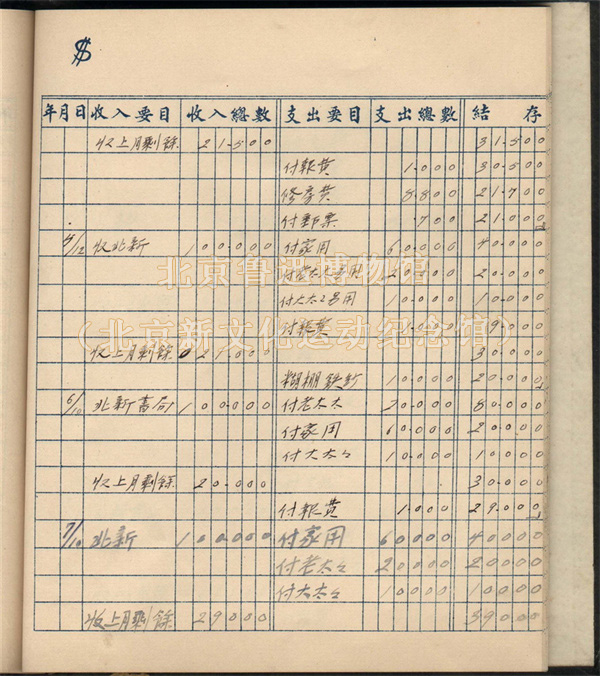 $
年月日 收入要目 收入總數 支出要目 支出總數 結存
收上月剩餘 21.500 31.500
付報費 1.000 30.500
修房費 8.800 21.700
付郵票 .700 21.000
5/12 收北新 100.000 付家用 60.000 40.000
付老太太 20.000 20.000
付大太太 10.000 10.000
付報費 1.000 9.000
收上月剩餘 21.000 30.000
糊棚 10.000 20.000
6/10 北新書局 100.000 付老太太 20.000 80.000
付家用 60.000 20.000
付大太太 10.000 10.000
收上月剩餘 20.000 30.000
付報費 1.000 29.000
7/10 北新 100000 付家用 60000 40000
付老太太 20000 20000
付大太太 10000 10000
收上月剩餘 29000 39000
北京鲁迅博物馆
(北京新文化运动纪念馆)